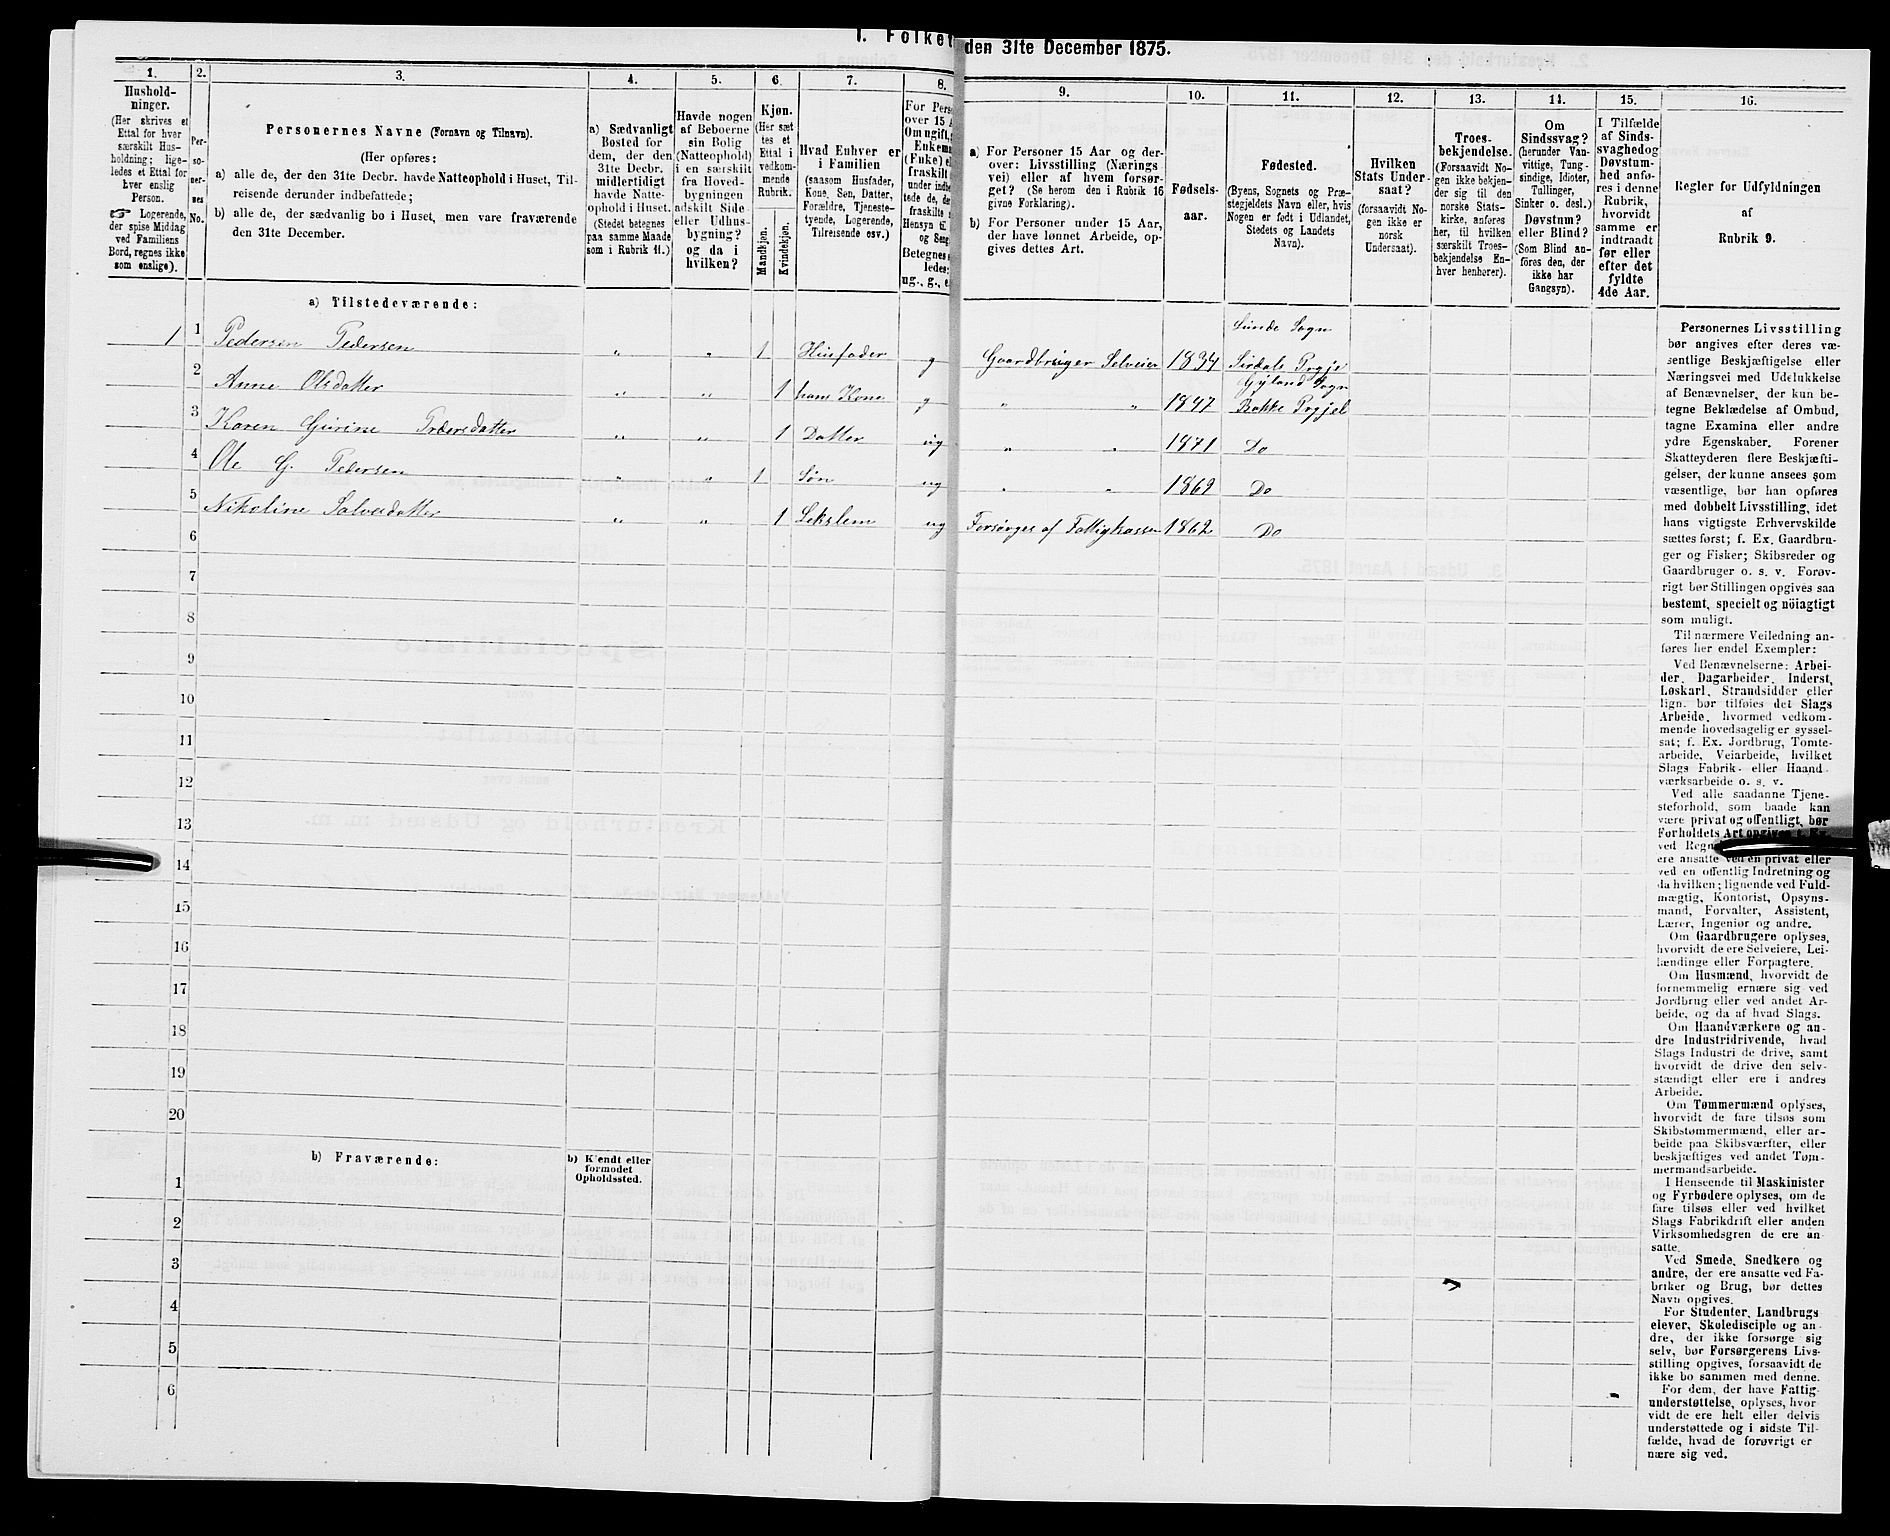 1. Folket
den 31te December 1875.
1.
2.
3.
4.
5.
6.
7.
8.
9.
10.
11.
12.
13.
14.
15.
16.
Hushold-
ninger.
(Her skrives et
Ettal for hver
særskilt Hus-
holdning; lige-
ledes et Ettal for
hver enslig
Person.
☞ Logerende,
der spise Middag
ved Familiens
Bord, regnes ikke
som enslige).
Per-
so-
ner-
nes
No.
Personernes Navne (Fornavn og Tilnavn).
(Her opføres:
a) alle de, der den 31te Decbr. havde Natteophold i Huset, Til-
reisende derunder indbefattede;
b) alle de, der sædvanlig bo i Huset, men vare fraværende
den 31te December.
a) Sædvanligt
Bosted for
dem, der den
31te Decbr.
midlertidigt
havde Natte-
ophold i Huset.
(Stedet betegnes
paa samme Maade
som i Rubrik 11.)
Havde nogen
af Beboerne
sin Bolig
(Natteophold)
i en særskilt
fra Hoved-
bygningen
adskilt Side-
eller Udhus-
bygning?
og da i
hvilken?
Kjøn.
(Her sæt
tes et
Ettal i
vedkom-
mende
Rubrik.
Mandkjøn.
Kvindekjøn.
Hvad Enhver er
i Familien
(saasom Husfader,
Kone, Søn, Datter,
Forældre, Tjeneste-
tyende, Logerende,
Tilreisende osv.)
For Perso
over 15 A
Om ugift,
Enkema
(Fuke) el
fraskilt
under indbe
tede de, de
fraskilte
Hensyn til
og Seng
Betegnes
ledes:
ug., g., e.
a) For Personer 15 Aar og der-
over: Livsstilling (Nærings
vei) eller af hvem forsør-
get? (Se herom den i Rubrik 16
givne Forklaring).
b) For Personer under 15 Aar,
der have lønnet Arbeide, op-
gives dettes Art.
Fødsels-
aar.
Fødested.
(Byens, Sognets og Præ-
stegjeldets Navn eller, hvis
Nogen er født i Udlandet,
Stedets og Landets
Navn).
Hvilken
Stats Under-
saat?
(forsaavidt No-
gen ikke er
norsk
Undersaat).
Troes-
bekjendelse.
(Forsaavidt No-
gen ikke bekjen-
der sig til den
norske Stats-
kirke, anføres
her, til hvilken
særskilt Troes-
bekjendelse En-
hver henhører).
Om
Sindssvag?
(herunder Van-
vittige, Tung-
sindige, Idioter,
Tullinger,
Sinker o. desl.)
Døvstum?
eller Blind?
(Som Blind an-
føres den, der
ikke har
Gangsyn).
I Tilfælde
af Sinds-
svaghed og
Døvstum-
hed anfø-
res i denne
Rubrik,
hvorvidt
samme er
indtraadt
før eller
efter det
fyldte
4de Aar.
Regler for Udfyldningen
af
Rubrik 9.
a) Tilstedeværende:
1 1 Pedersen Pedersen " " 1 Husfader g Gaardbruger Selveier 1834 Lunde Sogn
Sirdals Prgje
2 Anne Olsdatter " " 1 hans Kone g " " 1847 Gyland Sogn
Bakke Prgjel
3 Karen Gurine Pedersdatter " " 1 Datter ug " " 1871 Do
4 Ole G. Pedersen " " 1 Søn ug " " 1869 Do
5 Nikoline Salvesdatter " " 1 Lekslem ug Forsørges af Fattigkassen 1862 Do
6
7
8
9
10
11
12
13
14
15
16
17
18
19
20
b) Fraværende:
b) Kjendt eller
formodet
Opholdssted.
1
2
3
4
5
6
Personernes Livsstilling
bør angives efter deres væ-
sentlige Beskjæftigelse eller
Næringsvei med Udelukkelse
af Benævnelser, der kun be-
tegne Beklædelse af Ombud,
tagne Examina eller andre
ydre Egenskaber. Forener
Skatteyderen flere Beskjæfti-
gelser, der kunne ansees som
væsentlige, bør han opføres
med dobbelt Livsstilling, idet
hans vigtigste Erhvervskilde
sættes først; f. Ex. Gaardbru-
ger og Fisker; Skibsreder og
Gaardbruger o. s. v. Forøv-
rigt bør Stillingen opgives saa
bestemt, specielt og nöiagtigt
som muligt.
Til nærmere Veiledning an-
føres her endel Exempler:
Ved Benævnelserne: Arbei-
der, Dagarbeider, Inderst,
Løskarl, Strandsidder eller
lign. bør tilføies det Slags
Arbeide, hvormed vedkom-
mende hovedsagelig er syssel-
sat; f. Ex. Jordbrug, Tomte-
arbeide, Veiarbeide, hvilket
Slags Fabrik- eller Haand
værksarbeide o. s. v.
Ved alle saadanne Tjene-
steforhold, som baade kan
være privat og offentligt, bør
Forholdets Art opgives f. Ex.
ved Reg
ere ansatte ved en privat eller
ved en offentlig Indretning og
da hvilken; lignende ved Fuld-
mægtig, Kontorist, Opsyns-
mand, Forvalter, Assistent,
Lærer, Ingeniør og andre.
Om Gaardbrugere oplyses,
hvorvidt de ere Selveiere, Lei-
lændinge eller Forpagtere.
Om Husmænd, hvorvidt de
fornemmelig ernære sig ved
Jordbrug eller ved andet Ar-
beide, og da af hvad Slags.
Om Haandværkere og an-
dre Industridrivende, hvad
Slags Industri de drive, samt
hvorvidt de drive den selv-
stændigt eller ere i andres
Arbeide.
Om Tømmermænd oplyses,
hvorvidt de fare tilsøs som
Skibstømmermænd, eller ar-
beide paa Skibsværfter, eller
beskjæftiges ved andet Tøm-
mermandsarbeide.
I Henseende til Maskinister
og Fyrbødere oplyses, om de
fare tilsøs eller ved hvilket
Slags Fabrikdrift eller anden
Virksomhedsgren de ere an-
satte.
Ved Smede, Snedkere og
andre, der ere ansatte ved Fa-
briker og Brug, bør dettes
Navn opgives.
For Studenter, Landbrugs
elever, Skoledisciple og an-
dre, der ikke forsørge sig
selv, bør Forsørgerens Livs-
stilling opgives, forsaavidt de
ikke bo sammen med denne.
For dem, der have Fattig-
understøttelse, oplyses, hvor-
vidt de ere helt eller delvis
understøttede og i sidste Til-
fælde, hvad de forøvrigt er
nære sig ved.